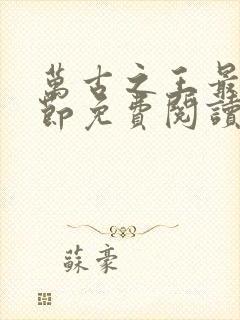 萬古之王最
節免費閱讀
蘇豪